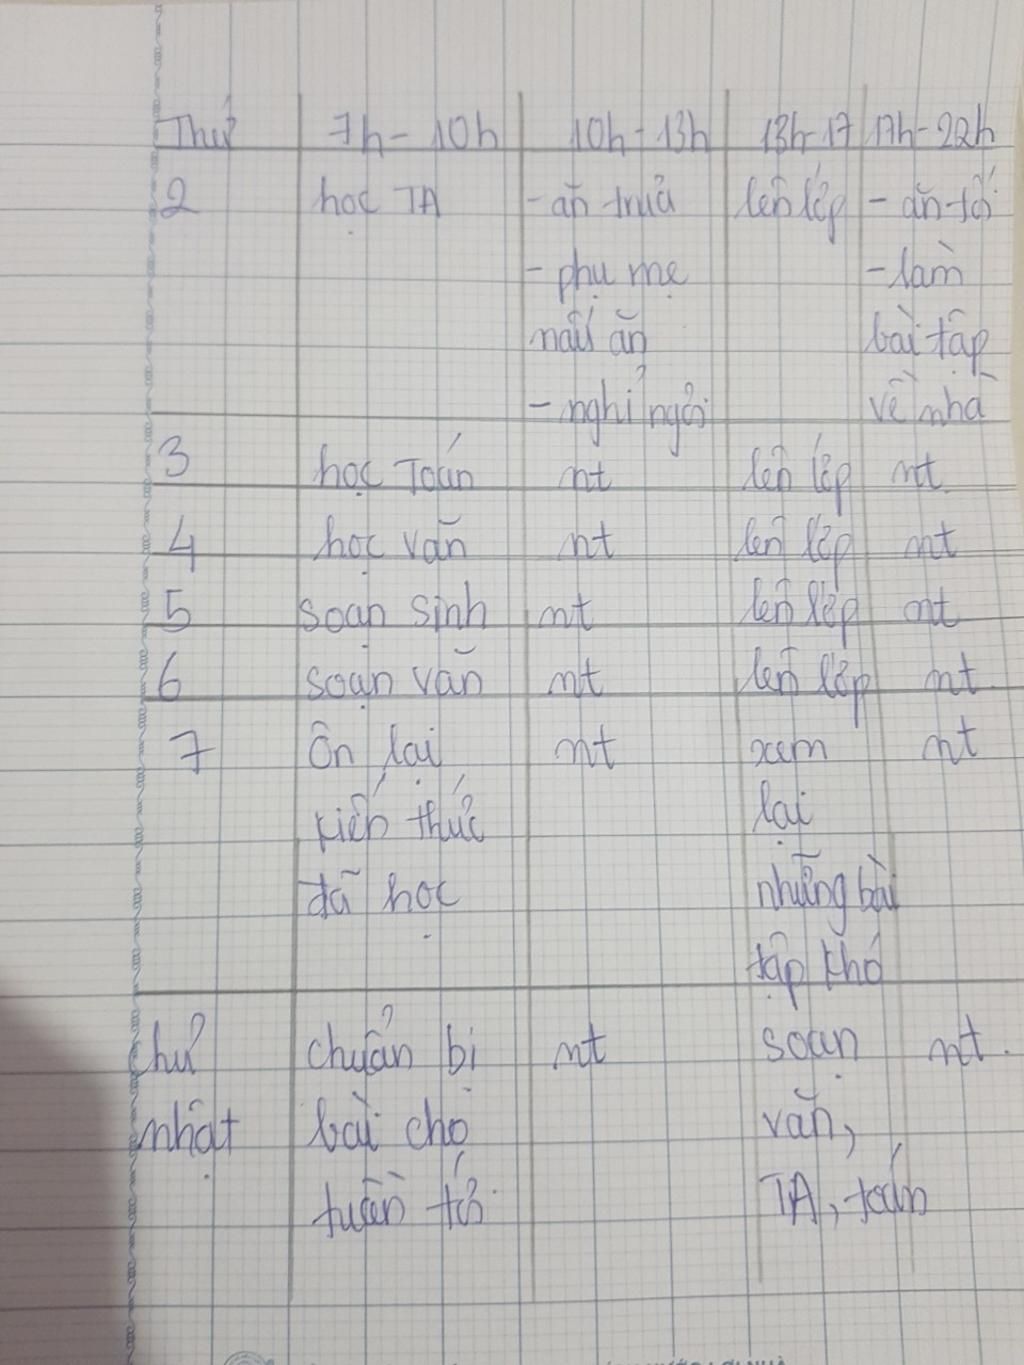 Thứ 7h - 10h 10h - 13h 13h-17 17h-22h
2 học TA - ăn trưa lên lớp - ăn tối
- phụ mẹ - làm
nấu ăn bài tập
- nghỉ ngơi về nhà
3 học Toán nt lên lớp nt
4 học văn nt lên lớp nt
5 soạn sinh nt lên lớp nt
6 soạn văn nt lên lớp nt
7 Ôn lại nt xem nt
kiến thức lại
đã học những bài
tập khó
chủ chuẩn bị nt soạn nt.
nhật bài cho văn,
tuần tới. TA, toán